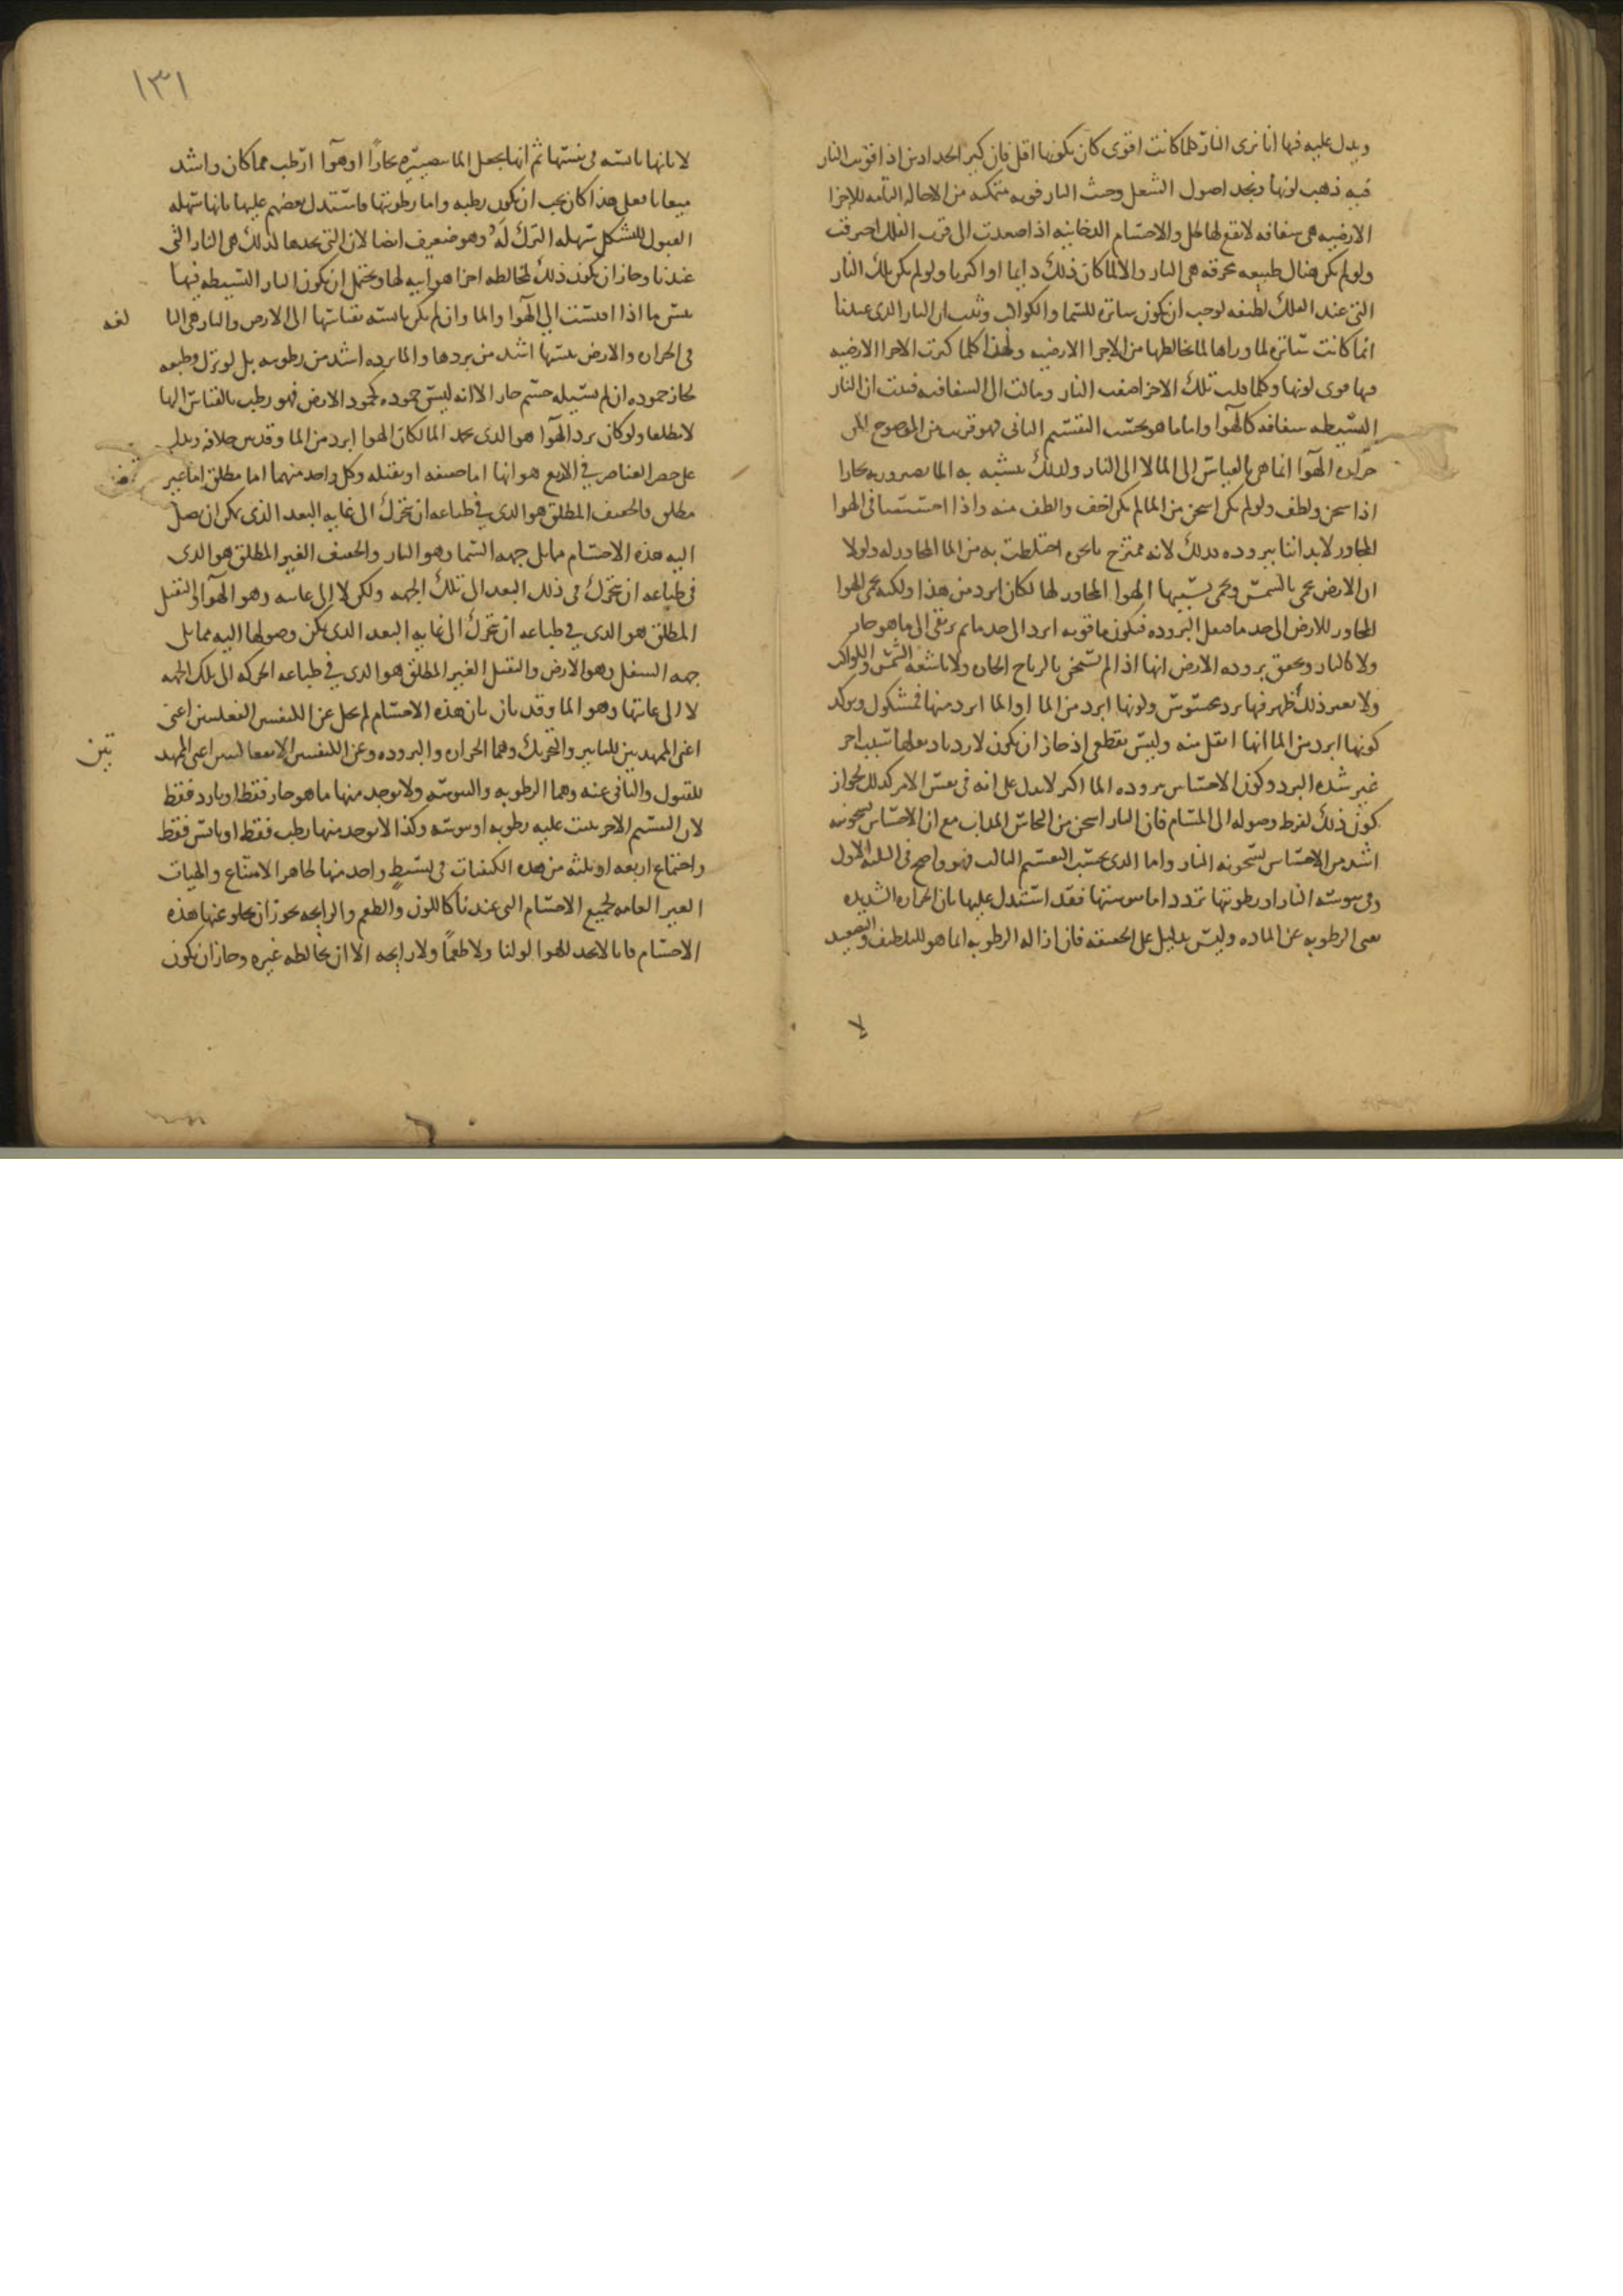 ويدل عليه فيها انا نرى النار كلما كانت اقوى كان تلونها اقل فان كير الحدادين اذا قويت النار
فيه ذهب لونها ونجد اصول الشعل وحيث النار قويه متمكنه من الاحاله التامه للاجزا
الارضيه هي شفافه لا يقع لها ظل والاجسام الدخانيه اذا صعدت الى قرب الفلك احترقت
ولو لم يكن هناك طبيعه محرقه هي النار والا لما كان ذلك دايما او اكثريا ولو لم يكن تلك النار
التي عند الفلك لطيفه لوجب ان يكون ساتره للسما والكواكب وثبت ان النار الذي عندنا
انما كانت ساتره لما وراها لما يخالطها من الاجزا الارضيه ولهذا كلما كثرت الاجزا الارضيه
فيها قوى لونها وكلما قلت تلك الاجزا ضعف النار ومالت الى الشفافيه فثبت ان النار
البسيطه شفافه كالهوا واما ما هو بحسب التقسيم الثاني فهو قريب من الوضوح
حراره الهوا انما هي بالقياس الى الما لا الى النار ولذلك يتشبه به الما بصيرورته بخارا
اذا سخن ولطف ولو لم يكن اسخن من الما لم يكن اخف والطف منه واذا احسسنا في الهوا
المجاور لابداننا ببروده فذلك لانه ممتزج بابخره اختلطت به من الما المجاور له ولولا
ان الارض تحمى بالشمس وتحمى بسببها الهوا المجاور لها لكان ابرد من هذا ولكنه يحمى الهوا
المجاور للارض الى حد ما فيقل البروده فيكون ما فوقه ابرد الى حد ما ثم يرتقي الى ما هو حار
ولا كالنار ويحقق بروده الارض انها اذا لم تسخن بالرياح الحاره ولا باشعه الشمس والكواكب
ولا بغير ذلك ظهر فيها برد محسوس وكونها ابرد من الما او الما ابرد منها فمشكوك ويوكد
كونها ابرد من الما انها اثقل منه وليس بقطعى اذ جاز ان يكون لازدياد ثقلها سبب اخر
غير شده البرد وكون الاحساس ببروده الما اكثر لا يدل على انه في نفس الامر كذلك لجواز
كون ذلك لفرط وصوله الى المسام فان النار اسخن من النحاس المذاب مع ان الاحساس بسخونته
اشد من الاحساس بسخونه النار واما الذي بحسب التقسيم الثالث فهو واضح في الثلثه الاول
وفي يبوسه النار او رطوبتها تردد اما يبوستها فقد استدل عليها بان الحراره الشديده
تفنى الرطوبه عن الماده وليس بدليل على الحقيقه فان ازاله الرطوبه انما هو للتلطيف والتصعيد
لا
١٣١
لا بانها يابسه في نفسها ثم انها بجعل الما بصيره بخارًا او هوآ ارطب مما كان واشد
ميعانا فعلى هذا كان يجب ان يكون رطبه واما رطوبتها فاستدل بعضهم عليها بانها سهله
القبول للتشكل سهله الترك له وهو ضعيف ايضا لان التي نجدها لذلك هي النار التي
عندنا وجاز ان يكون ذلك لمخالطه اجزا هوائيه لها ويحتمل ان يكون النار البسيطه فيها
يبس ما اذا قيست الى الهوآ والما وان لم يكن يابسه بقياسها الى الارض والنار هي البا
لغه
في الحراره والارض يبسها اشد من بردها والما برده اشد من رطوبته بل لو نزل وطبعه
لجاز جموده ان لم يسيله جسم حار الا انه ليس جموده كجمود الارض فهو رطب بالقياس اليها
لا مطلقا ولو كان برد الهوآ هو الذي يجمد الما لكان الهوا ابرد من الما وقد بين خلافه ويدل
على حصر العناصر في الاربع هو انها اما خفيفه او ثقيله وكل واحد منهما اما مطلق اما غير
مطلق والخفيف المطلق هو الذي في طباعه ان يتحرك الى غايه البعد الذي يمكن ان يصل
اليه هذه الاجسام مما يلى جهه السما وهو النار والخفيف الغير المطلق هو الذي
في طباعه ان يتحرك في ذلك البعد الى تلك الجهه ولكن لا الى غايته وهو الهوآ والثقيل
المطلق هو الذي في طباعه ان يتحرك الى غايه البعد الذي يمكن وصولها اليه مما يلى
جهه السفل وهو الارض والثقيل الغير المطلق هو الذي في طباعه الحركه الى تلك الجهه
لا الى غايتها وهو الما وقد بان بان هذه الاجسام لم يخل عن الكيفيتين الفعليتين اعنى
اعنى الممهدتين للتاثير والتحريك وهما الحراره والبروده وعن الكيفيتين الانفعاليتين اعنى الممهد
تين
للقبول والتاني عنه وهما الرطوبه واليبوسه ولا يوجد منها ما هو حار فقط او بارد فقط
لان التقسيم الاخر يثبت عليه رطوبه او يبوسه وكذا لا يوجد منها رطب فقط او يابس فقط
واجتماع اربعه او ثلثه من هذه الكيفيات في بسيطٍ واحد منها ظاهر الامتناع والهيات
الغير العامه لجميع الاجسام التي عندنا كاللون والطعم والرايحه يجوز ان يخلو عنها هذه
الاجسام فانا لا نجد للهوا لونا ولا طعمًا ولا رايحه الا ان يخالطه غيره وجاز ان يكون